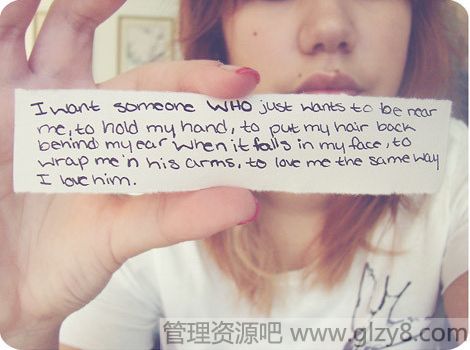 I want someone WHO just wants to be near
me, to hold my hand, to put my hair back
behind my ear when it falls in my face, to
wrap me'n his arms, to love me the same way
I love him.
管理资源吧 www.glzy8.com